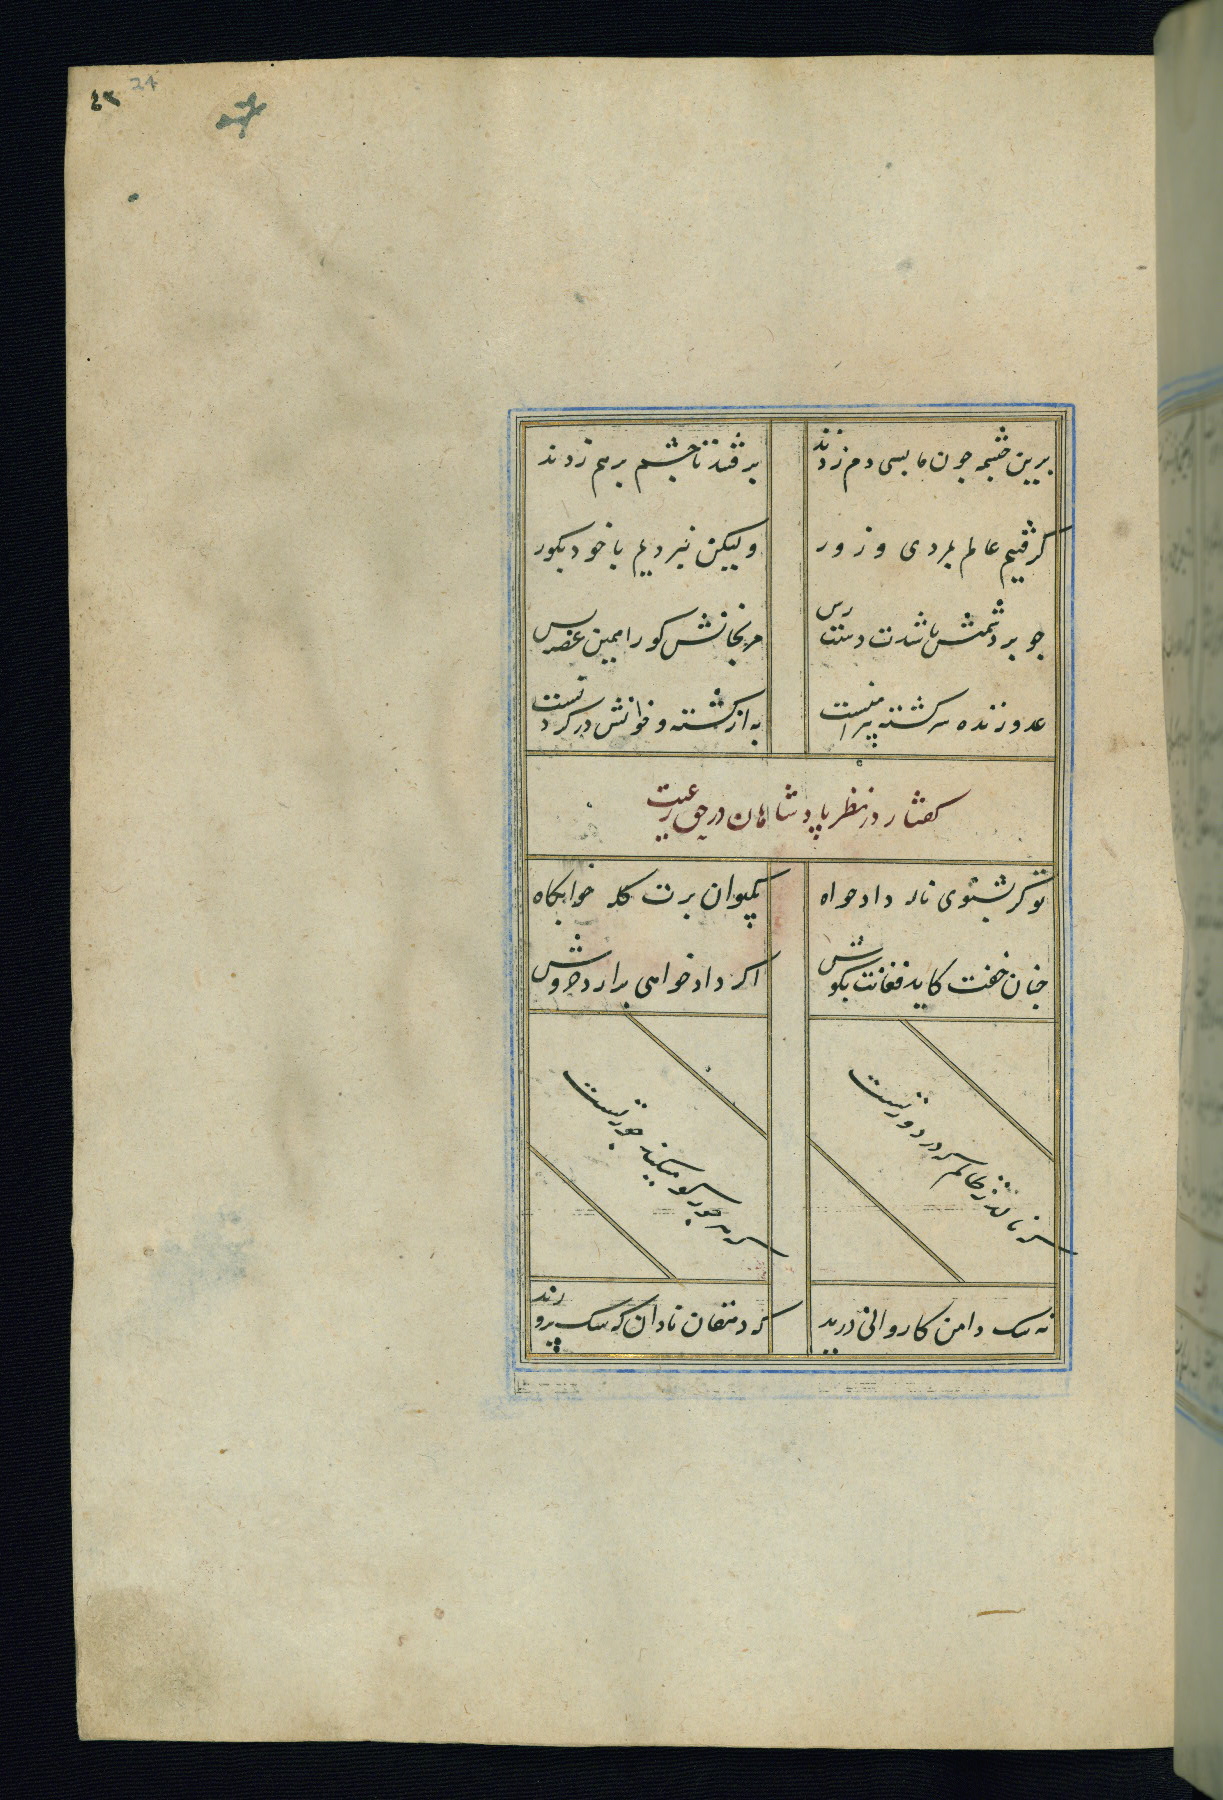 24
برین چشمه جون ما بسی دم زدند
برفتند تا چشم برهم زدند
کرفتیم عالم بمردی و زور
ولیکن نبردیم با خود بکور
جو بر دشمنش باشدت دست رس
مرنجانش کورا همین غصه بس
عدو زنده سرکشته پیرامنست
به از کشته و خونش در کردنست
کفتار در نظر پادشاهان در حق رعیت
تو کی بشنوی ناله دادخواه
بکیوان برت کله خوابکاه
جنان خفت کاید فغانت بکوش
اکر دادخواهی برارد خروش
که نالد ز ظالم که در دور تست
که هر جور کو میکند جور تست
نه سک دامن کاروانی درید
که دهقان نادان که سک پرورند